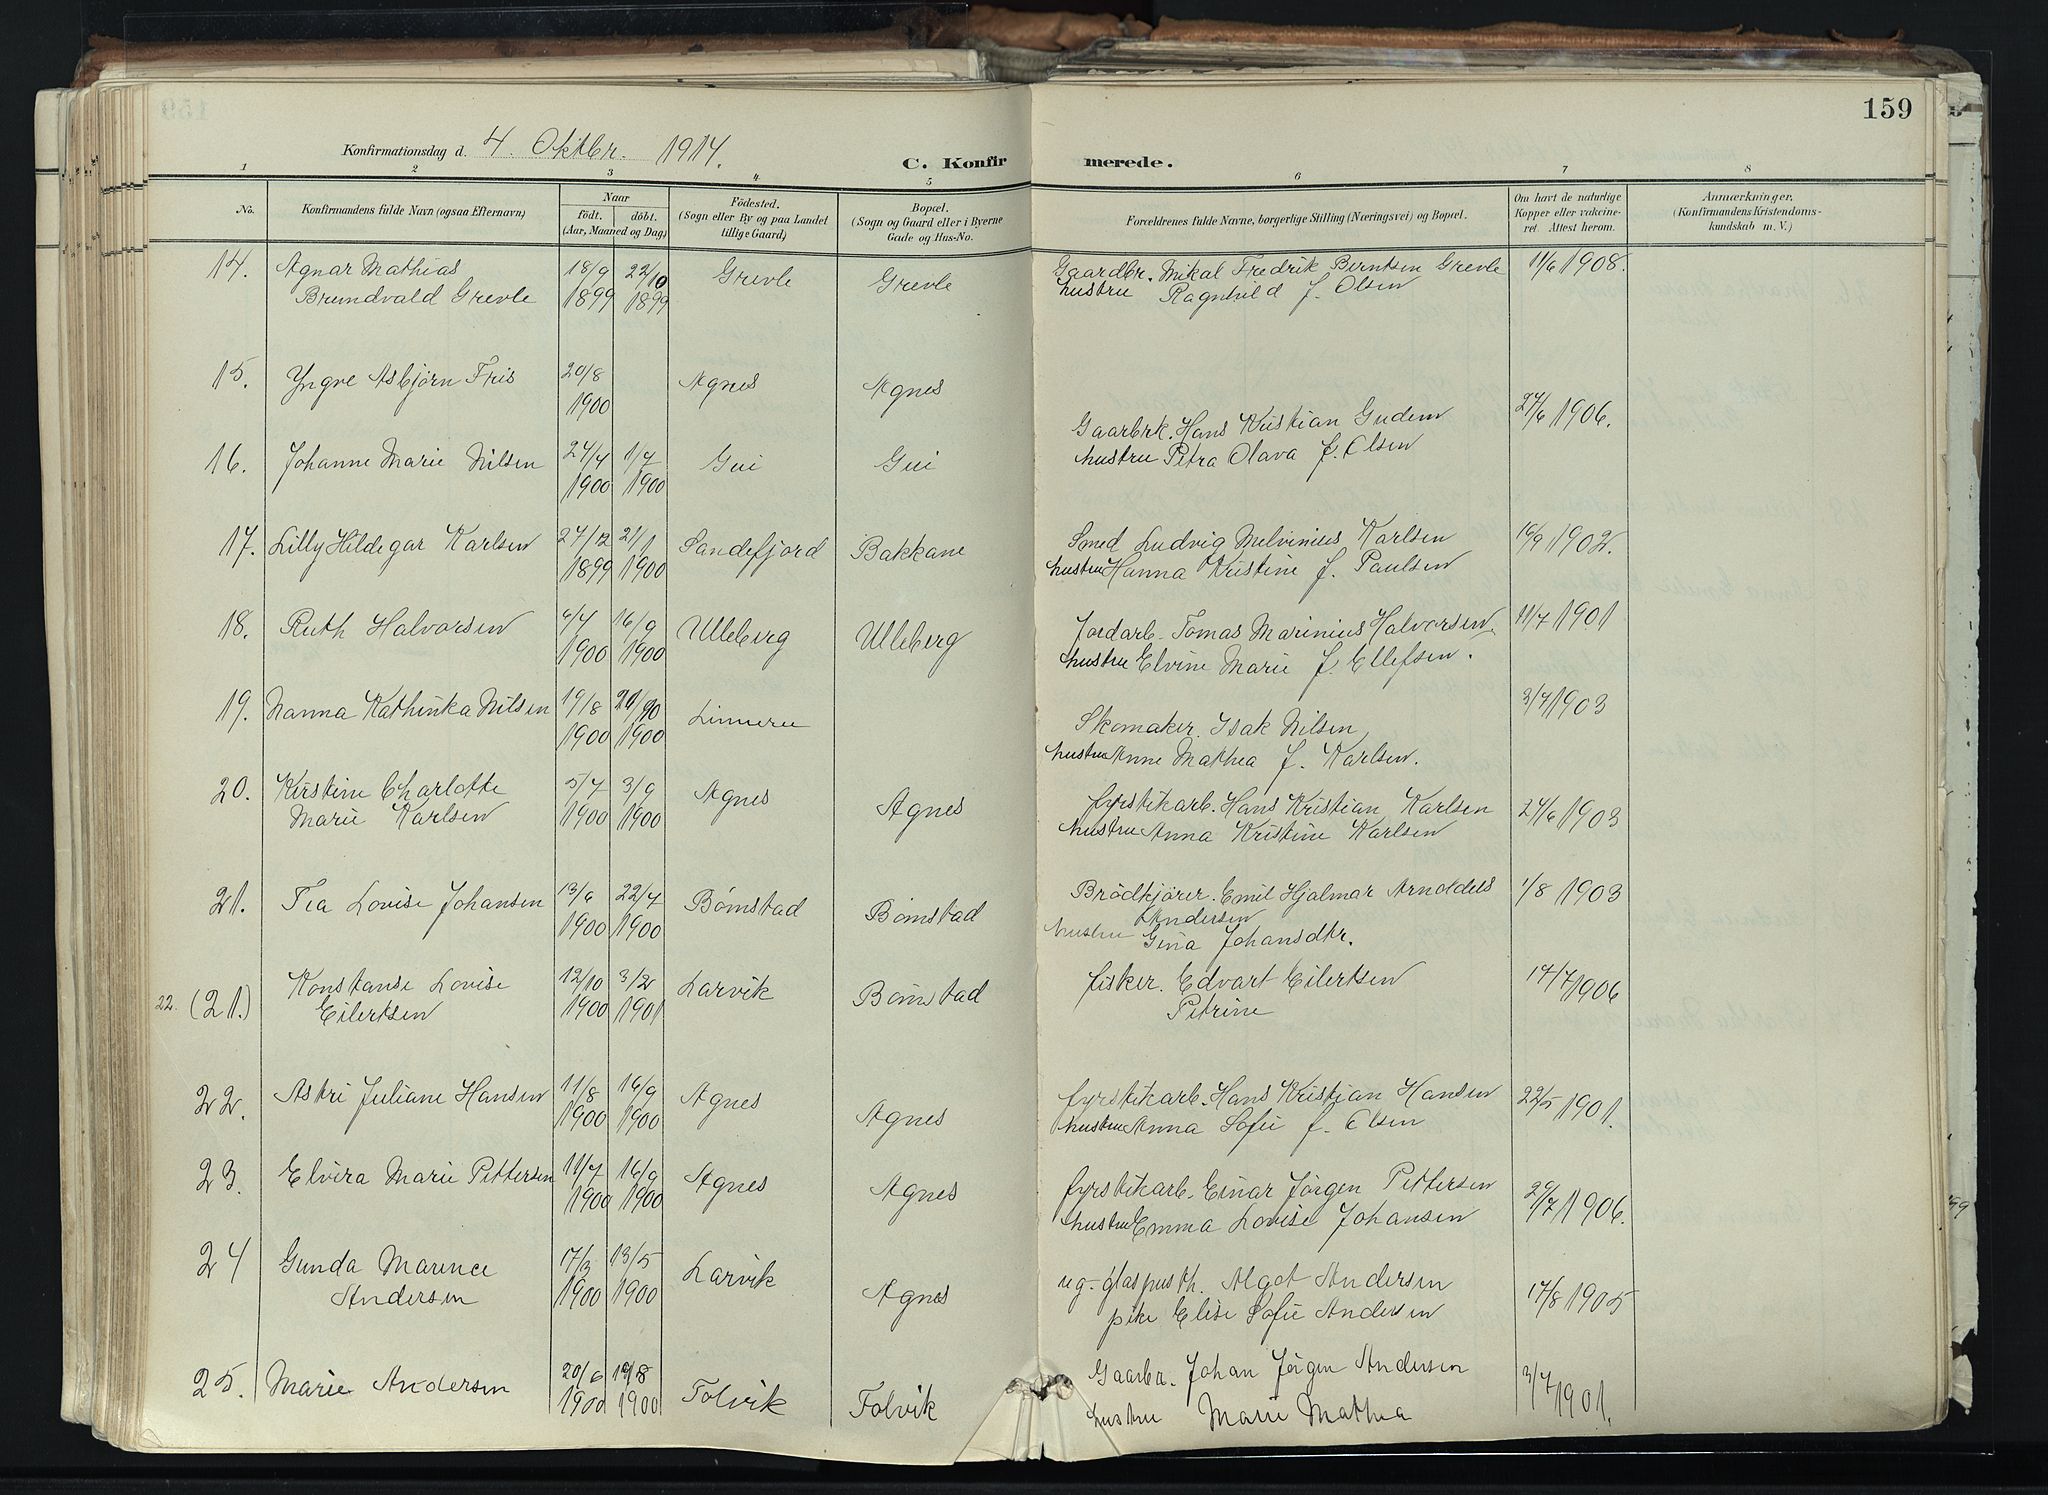 159
Konfirmationsdag d. 4. Oktbr. 1914.
C. Konfirmerede.
1 2 3 4 5 6 7 8
No.
Konfirmandens fulde Navn (ogsaa Efternavn)
Naar
født. døbt.
(Aar, Maaned og Dag)
Fødested.
(Sogn eller By og paa Landet
tillige Gaard)
Bopæl.
(Sogn og Gaard eller i Byerne
Gade og Hus-No.
Forældrenes fulde Navne, borgerlige Stilling (Næringsvei) og Bopæl.
Om havt de naturlige
Kopper eller vakcine-
ret. Attest herom.
Anmærkninger.
(Konfirmandens Kristendoms-
kundskab m. V.)
14. Agnar Mathias 18/9 22/10 Grevle Grevle Gaardbr. Mikal Fredrik Berntsen Grevle 11/6 1908.
Brundvald Grevle 1899 1899 hustru Ragnhild f. Olsen
15. Yngve Asbjørn Fris 20/8 Agnes Agnes
1900
Gaarbrk. Hans Kristian Gudem 27/6 1906.
16. Johanne Marie Nilsen 24/4 1/7 Gui Gui hustru Petra Olava f. Olsen
1900 1900
17. Lilly Hildegar Karlsen 27/12 21/1 Sandefjord Bakkane Smed Ludvig Melvinius Karlsen 16/9 1902.
1899 1900 hustru Hanna Kristine f. Paulsen
18. Ruth Halvorsen 6/7 16/9 Ulleberg Ulleberg Jordarb. Tomas Marinius Halvorsen. 11/7 1901
1900 1900 hustru Elvine Marie f. Ellefsen.
19. Nanna Kathinka Nilsen 19/8 /10 3/7 1903
1900 1900 Skomaker. Isak Nilsen
hustru Anne Mathea f. Karlsen.
20. Kirstine Charlotte 5/7 3/9 Agnes Agnes fyrstikarb. Hans Kristian Karlsen 27/6 1903
Marie Karlsen 1900 1900 hustru Anna Kristine Karlsen
21. Tea Lovise Johansen 13/6 22/7 Bømstad Bømstad Brödkjører. Emil Hjalmar Arnoldels 1/8 1903
1900 1900 Andersen
hustru Gina Johansdtr.
22. (21.) Konstanse Lovise 12/10 3/2 Larvik Bømstad fisker. Edvart Eilertsen 17/7 1906
Eilertsen 1900 1901 Petrine
22. Astri Juliane Hansen 11/8 16/9 Agnes Agnes fyrstikarb. Hans Kristian Hansen 22/5 1901.
1900 1900 hustru Anna Sofie f. Olsen
23. Elvira Marie Pettersen 11/7 16/9 Agnes Agnes fyrstikarb. Einar Jørgen Pettersen 29/7 1906.
1900 1900 hustru Emma Lovise Johansen
24 Gunda Marence 17/3 13/5 Larvik Agnes ug. glaspusth. Algot Andersen 17/8 1905
Andersen 1900 1900 pike Elise Sofie Andersen
25. Marie Andersen 20/6 19/8 Tolvik Tolvik Gaarbr. Johan Jørgen Andersen 3/7 1901.
1900 1900 hustru Marie Mathea